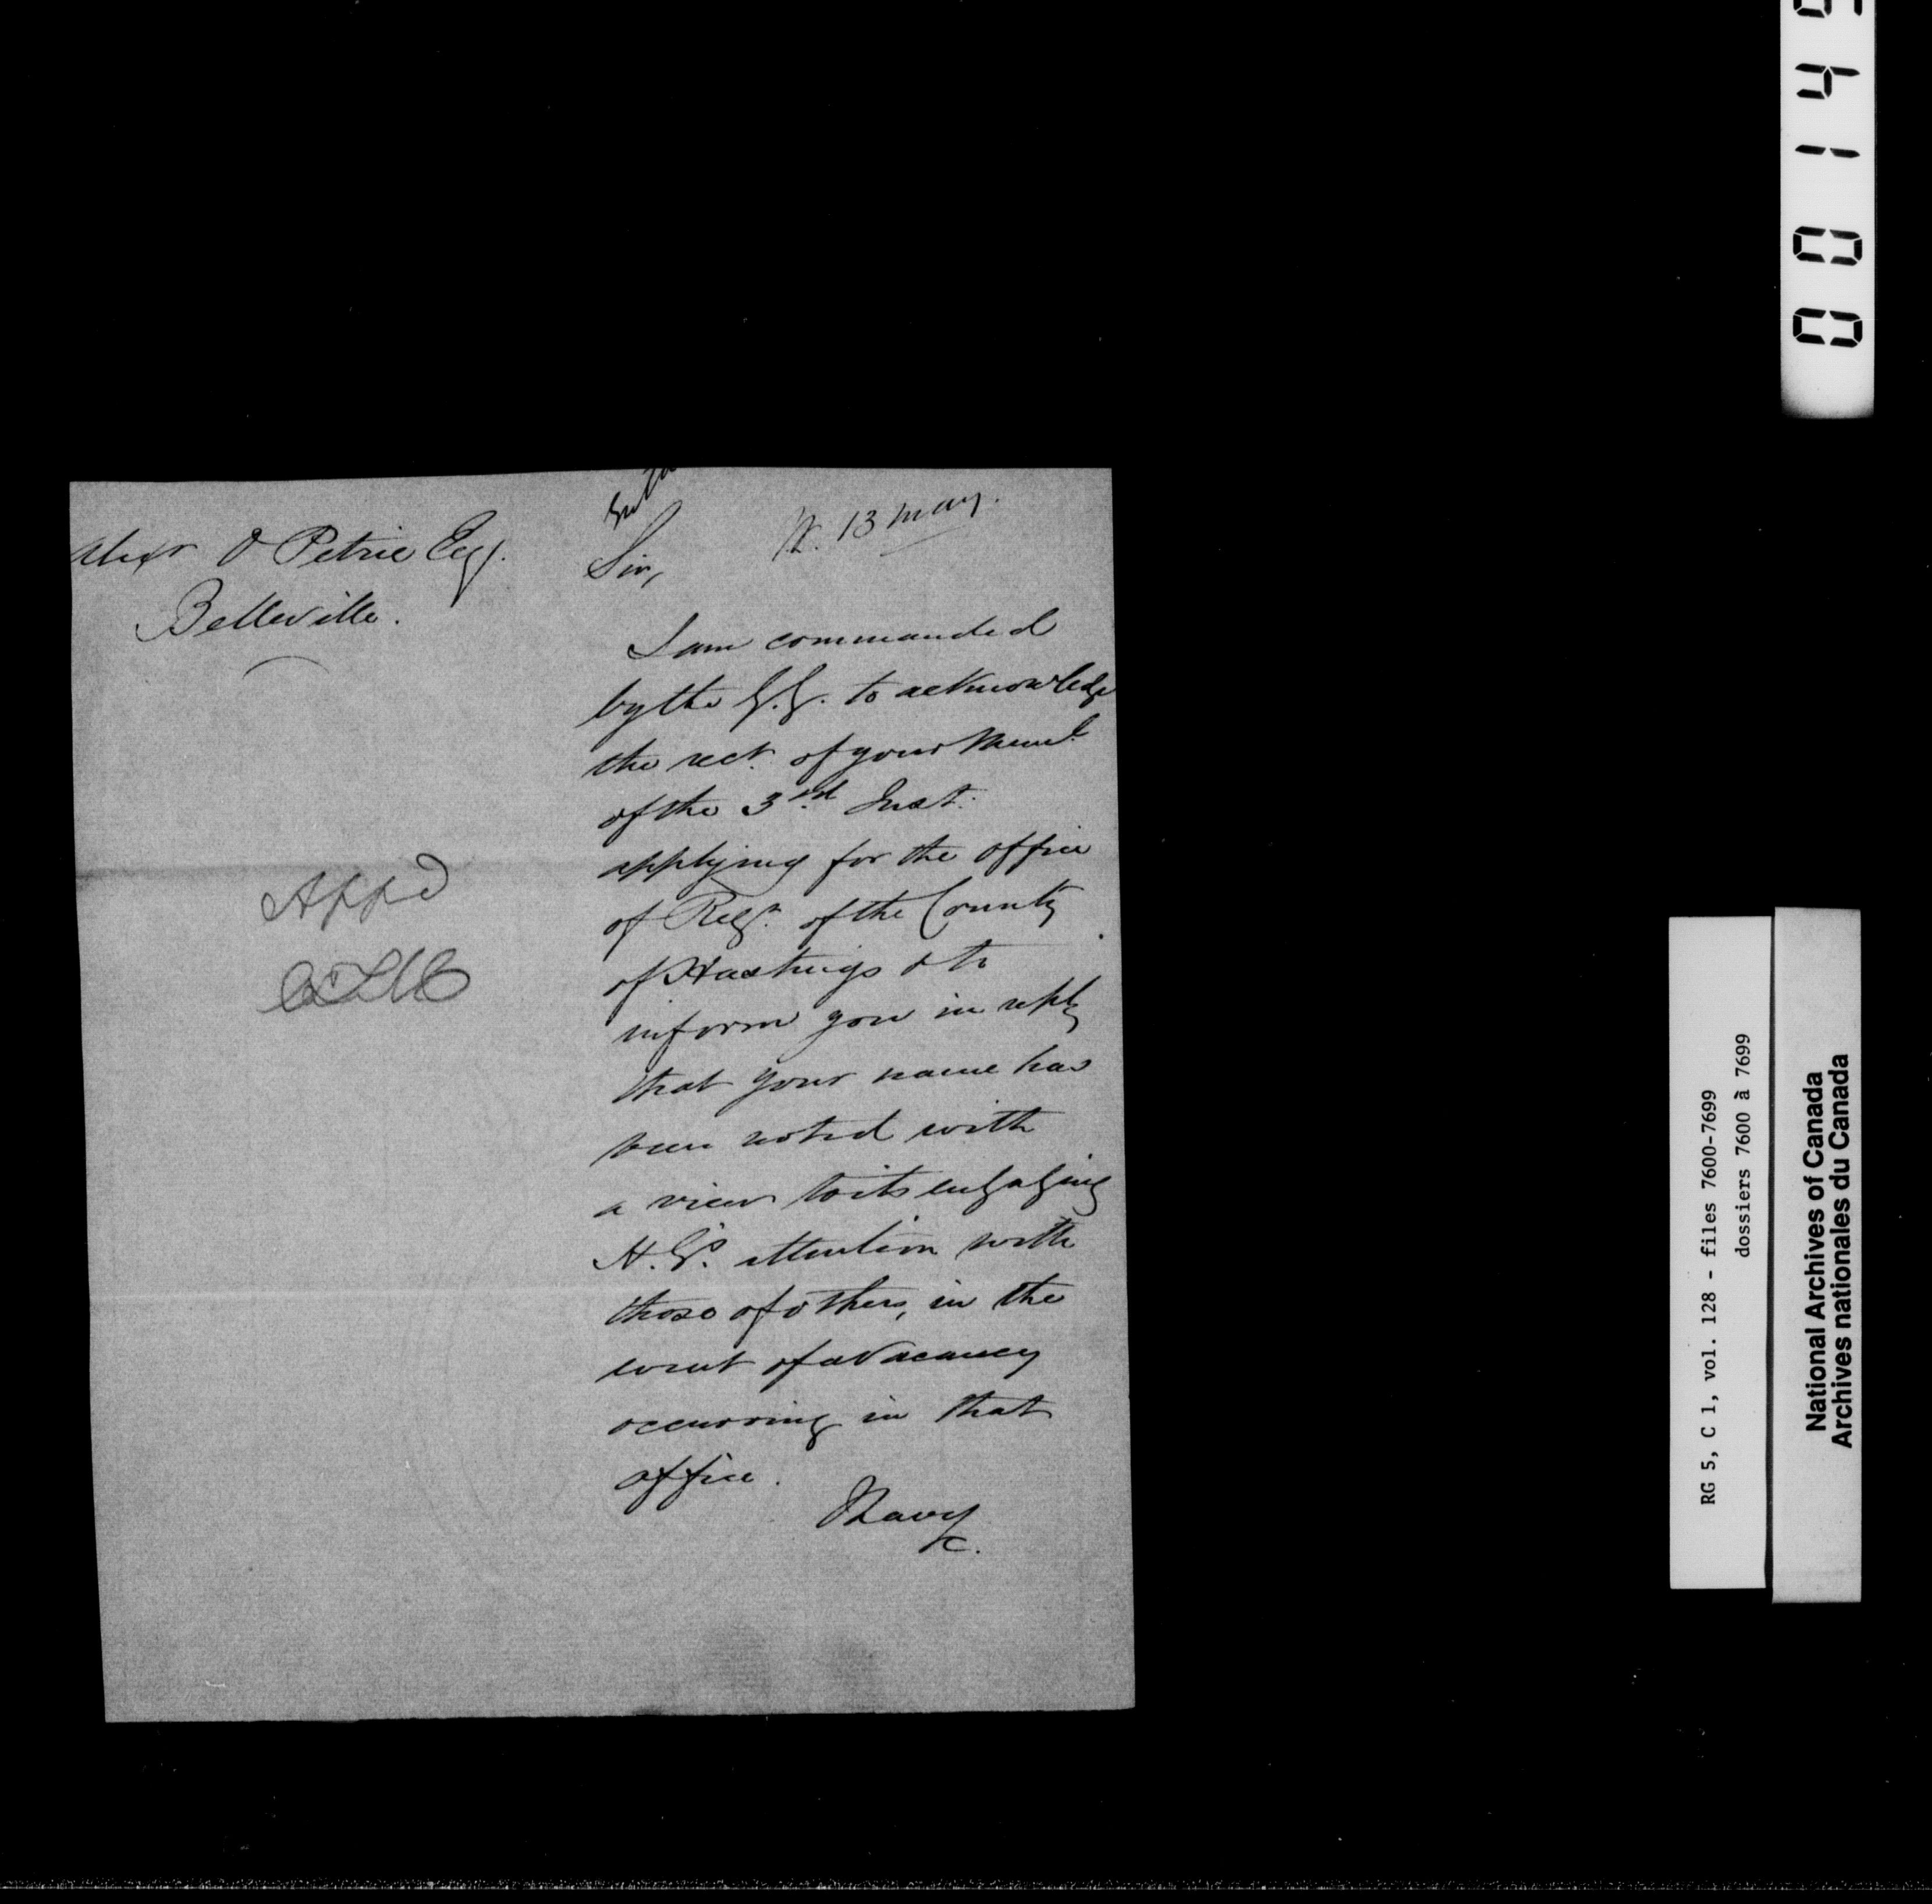 Alexr O Petrie Esq.
Belleville.
13 May.
Sir,
I am commanded
by the G.G. to acknowledge
the rect. of your Meml.
of the 3rd Inst.
applying for the office
of Regr. of the County
of Hastings & to
inform you in reply
that your name has
been noted with
a view to its engaging
H.E's. attention with
those of others, in the
event of a Vacancy
occurring in that
office.
I have
&c.
Appd
RG 5, C 1, vol. 128 - files 7600-7699
dossiers 7600 à 7699
National Archives of Canada
Archives nationales du Canada
0 0 1 4